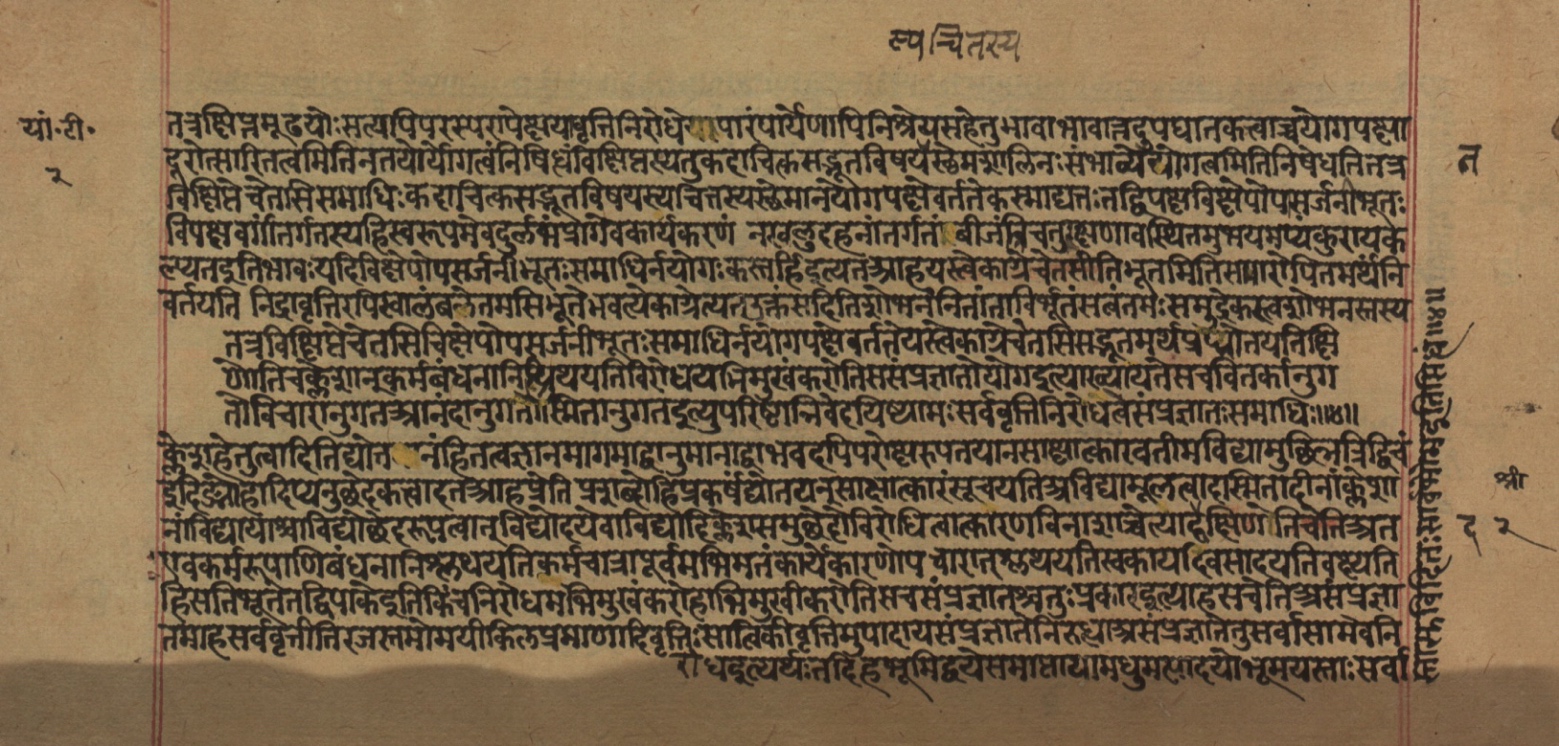 स्पचितस्य
यो.टी.
२
तत्रक्षिप्तमूढयोःसत्यपिपरस्परापेक्षयावृत्तिनिरोधेपारंपर्येणापिनिश्रेयसहेतुभावाभावात्तदुपघातकत्वाच्चयोगपक्षा
दूरोत्सारितत्वमितिनतयोर्योगत्वंनिषिद्धंविक्षिप्तस्यतुकदाचित्कसद्भूतविषयस्थेमशालिनःसंभाव्येतयोगत्वमितिनिषेधतितत्र
त
विक्षिप्तेचेतसिसमाधिःकदाचित्कसद्भूतविषयस्यचित्तस्यस्थेमानयोगपक्षेवर्ततेकस्माद्यतःतद्विपक्षविक्षेपोपसर्जनीभूतः
विपक्षवर्गांतर्गतस्यहिस्वरूपमेवदुर्लभंप्रागेवकार्यकरणं नखलुदहनांतर्गतंबीजंत्रिचतुरक्षणावस्थितमुभयमप्यंकुरायक
ल्प्यतइतिभावःयदिविक्षेपोपसर्जनीभूतःसमाधिर्नयोगःकस्तर्हिइत्यतआहयस्त्वेकाग्रेचेतसीतिभूतमितिसमारोपितमर्थंनि
वर्तयति निद्रावृत्तिरपिस्वालंबनेतमसिभूतेभवत्येकाग्रेत्यतउक्तंसदितिशोभनंनितांताविर्भूतंसत्वंतमःसमुद्रेकस्त्वशोभनस्तस्य
तत्रविक्षिप्तेचेतसिविक्षेपोपसर्जनीभूतःसमाधिर्नयोगपक्षेवर्ततेयस्त्वेकाग्रेचेतसिसद्भूतमर्थंप्रद्योतयतिक्षि
णोतिचक्लेशान्कर्मबंधनानिश्लथयतिनिरोधमभिमुखंकरोतिससंप्रज्ञातोयोगइत्याख्यायतेसचवितर्कानुग
तोविचारानुगतआनंदानुगतोस्मितानुगतइत्युपरिष्टान्निवेदयिष्यामःसर्ववृत्तिनिरोधेत्वसंप्रज्ञातःसमाधिः॥
क्लेशहेतुत्वादितिद्योतनंहितत्वज्ञानमागमाद्वानुमानाद्वाभवदपिपरोक्षरूपतयानसाक्षात्कारवतीमविद्यामुछिनत्तिद्विचं
द्रदिङ्मोहादिप्यनुछेदकत्वादतआहप्रेति प्रशब्दोहिप्रकर्षंद्योतयन्साक्षात्कारंसूचयतिअविद्यामूलत्वादस्मितादीनांक्लेशा
श्री
नांविद्यायाश्चाविद्योछेदरूपत्वात्विद्योदयेचाविद्यादिक्लेशसमुछेदोविरोधित्वात्कारणविनाशाच्चेत्याहक्षिणोतिचेतिअत
द २
एवकर्मरूपाणिबंधनानिश्लथयतिकर्मचात्रापूर्वमभिमतंकार्येकारणोपचारात्श्लथयतिस्वकार्यादवसादयतिवक्ष्यति
हिसतिमूलेतद्विपाकइतिकिंचनिरोधमभिमुखंकरोत्यभिमुखीकरोतिसचसंप्रज्ञातश्चतुःप्रकारइत्याहसचेतिअसंप्रज्ञा
तमाहसर्ववृत्तीतिरजस्तमोमयीकिलप्रमाणादिवृत्तिःसात्विकींवृत्तिमुपादायसंप्रज्ञातेनिरुद्धाअसंप्रज्ञातेतुसर्वासामेवनि
रोधइत्यर्थःतदिहभूमिद्वयेसमाप्तायामधुमत्यादयोभूमयस्ताःसर्वा